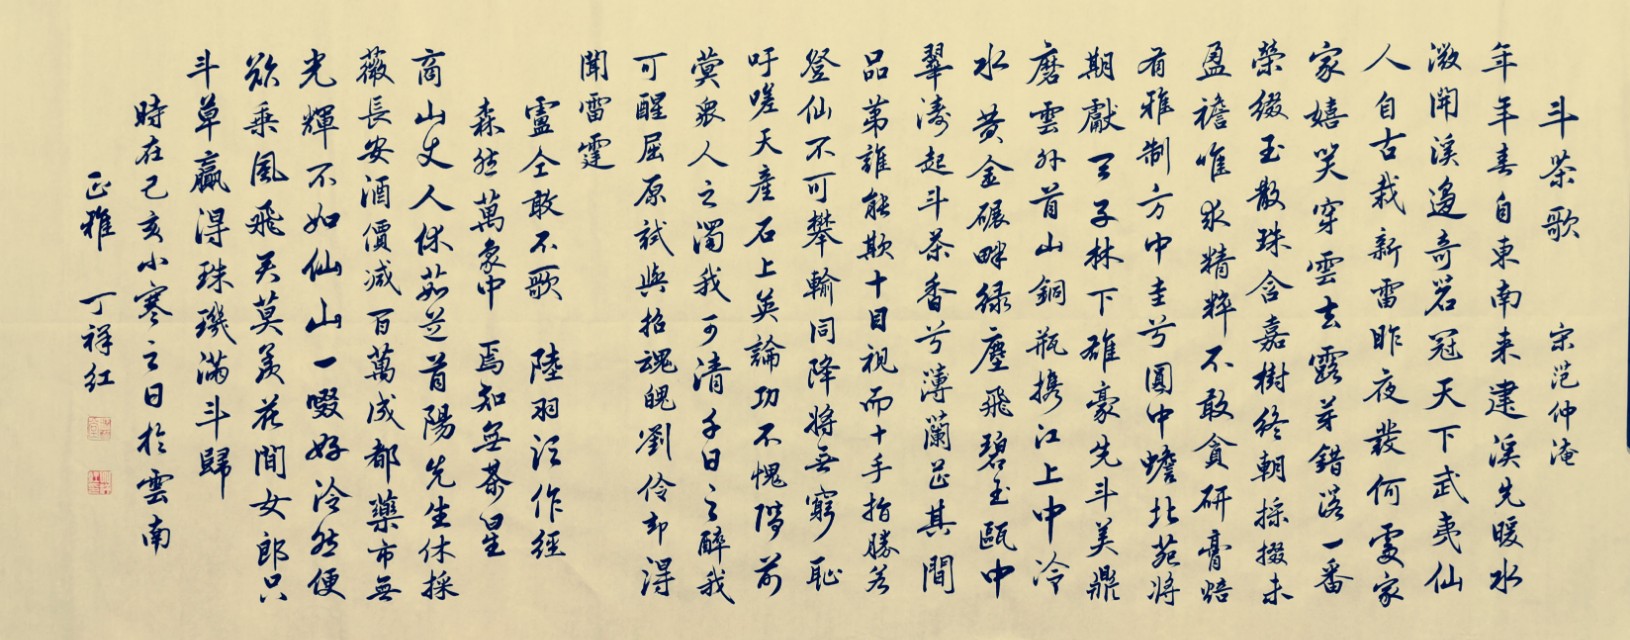 斗茶歌 宋范仲淹
年年春自東南来建溪先暖水
微開溪邊奇茗冠天下武夷仙
人自古栽新雷昨夜發何處家
家嬉笑穿雲去露芽錯落一番
榮綴玉散珠含嘉樹終朝採掇未
盈襜唯求精粹不敢貪研膏焙
有雅制方中圭兮圓中蟾北苑將
期獻天子林下雄豪先斗美鼎
磨雲外首山銅瓶携江上中泠
水黃金碾畔緑塵飛碧玉甌中
翠濤起斗茶香兮薄蘭芷其間
品第誰能欺十目視而十手指勝若
登仙不可攀輸同降將無窮恥
吁嗟天產石上英論功不愧階前
蓂衆人之濁我可清千日之醉我
可醒屈原試與招魂魄劉伶却得
聞雷霆
盧仝敢不歌 陸羽須作經
森然萬象中 焉知無茶星
商山丈人休茹芝首陽先生休採
薇長安酒價减百萬成都藥市無
光輝不如仙山一啜好泠然便
欲乘風飛君莫羨花間女郎只
斗草贏得珠璣滿斗歸
時在己亥小寒之日於雲南
正雅 丁祥红